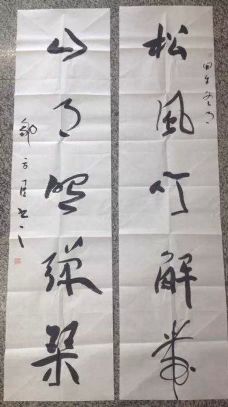 甲午冬月
松風吹解帶
山月照彈琴